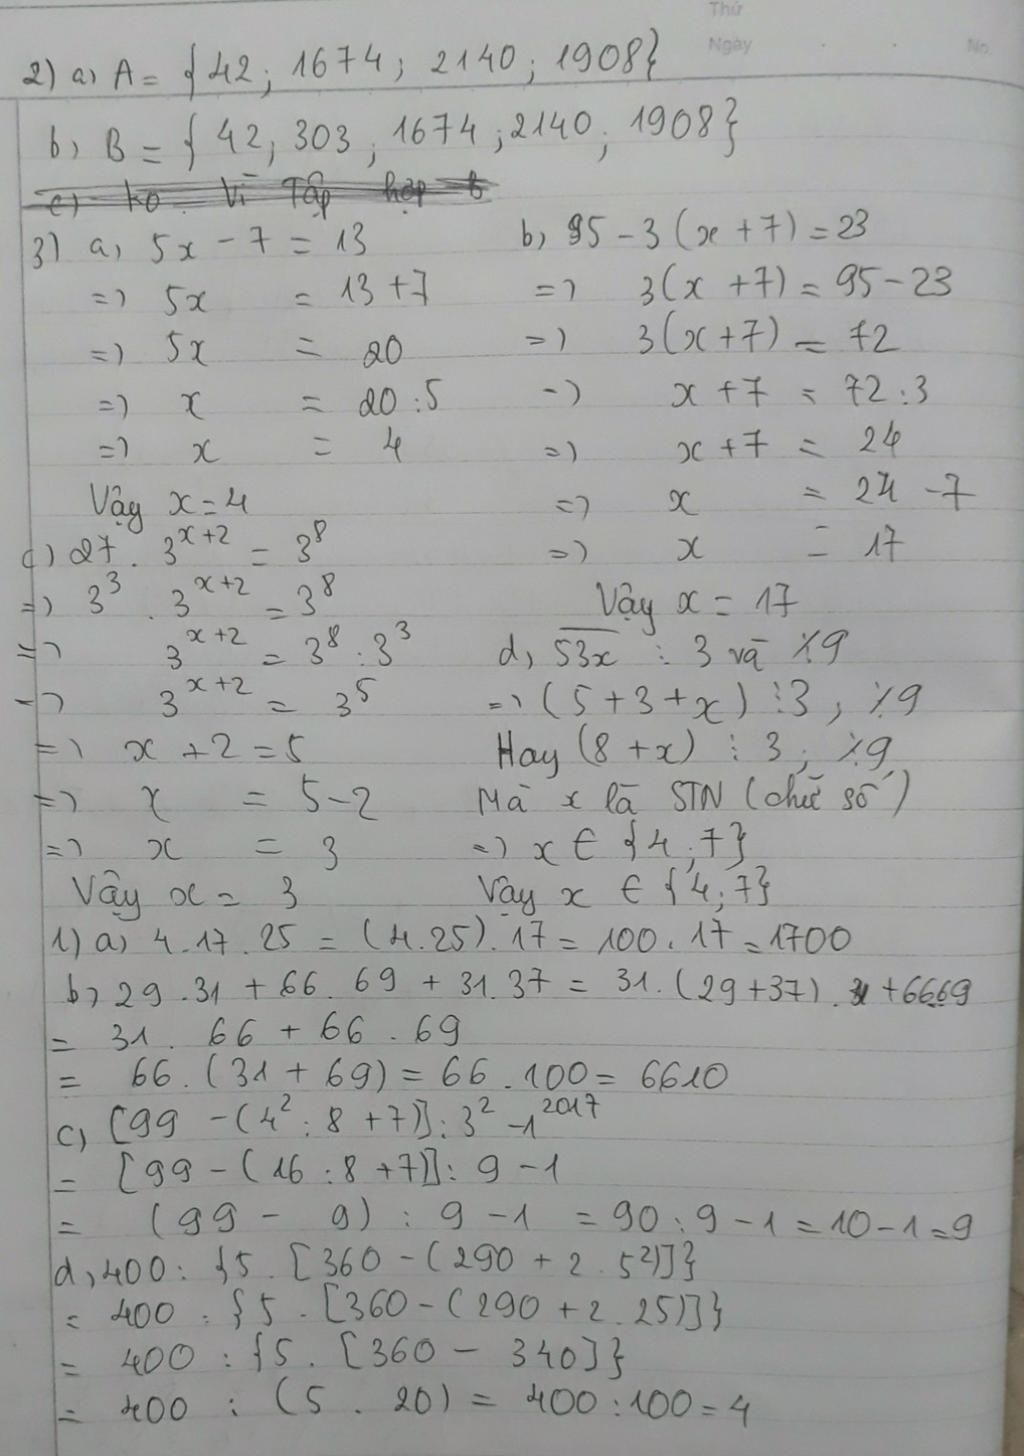 Thứ
Ngày No.
2) a, A = {42; 1674; 2140; 1908}
b, B = {42; 303; 1674; 2140; 1908}
c) ko Vì Tập hợp
3) a, 5x - 7 = 13
=> 5x = 13 + 7
=> 5x = 20
=> x = 20 : 5
=> x = 4
Vậy x = 4
c) 27 . 3^{x+2} = 3^8
=> 3^3 . 3^{x+2} = 3^8
=> 3^{x+2} = 3^8 : 3^3
=> 3^{x+2} = 3^5
=> x + 2 = 5
=> x = 5 - 2
=> x = 3
Vậy x = 3
b, 95 - 3(x + 7) = 23
=> 3(x + 7) = 95 - 23
=> 3(x + 7) = 72
=> x + 7 = 72 : 3
=> x + 7 = 24
=> x = 24 - 7
=> x = 17
Vậy x = 17
d, \overline{53x} ⋮ 3 và ⋮̸ 9
=> (5 + 3 + x) ⋮ 3, ⋮̸ 9
Hay (8 + x) ⋮ 3; ⋮̸ 9
Mà x là STN (chữ số)
=> x ∈ {4; 7}
Vậy x ∈ {4; 7}
1) a, 4 . 17 . 25 = (4 . 25) . 17 = 100 . 17 = 1700
b, 29 . 31 + 66 . 69 + 31 . 37 = 31 . (29 + 37) . + 66.69
= 31 . 66 + 66 . 69
= 66 . (31 + 69) = 66 . 100 = 6610
c, [99 - (4^2 : 8 + 7)] : 3^2 - 1^{2017}
= [99 - (16 : 8 + 7)] : 9 - 1
= (99 - 9) : 9 - 1 = 90 : 9 - 1 = 10 - 1 = 9
d, 400 : {5 . [360 - (290 + 2 . 5^2)]}
= 400 : {5 . [360 - (290 + 2 . 25)]}
= 400 : {5 . [360 - 340]}
= 400 : (5 . 20) = 400 : 100 = 4